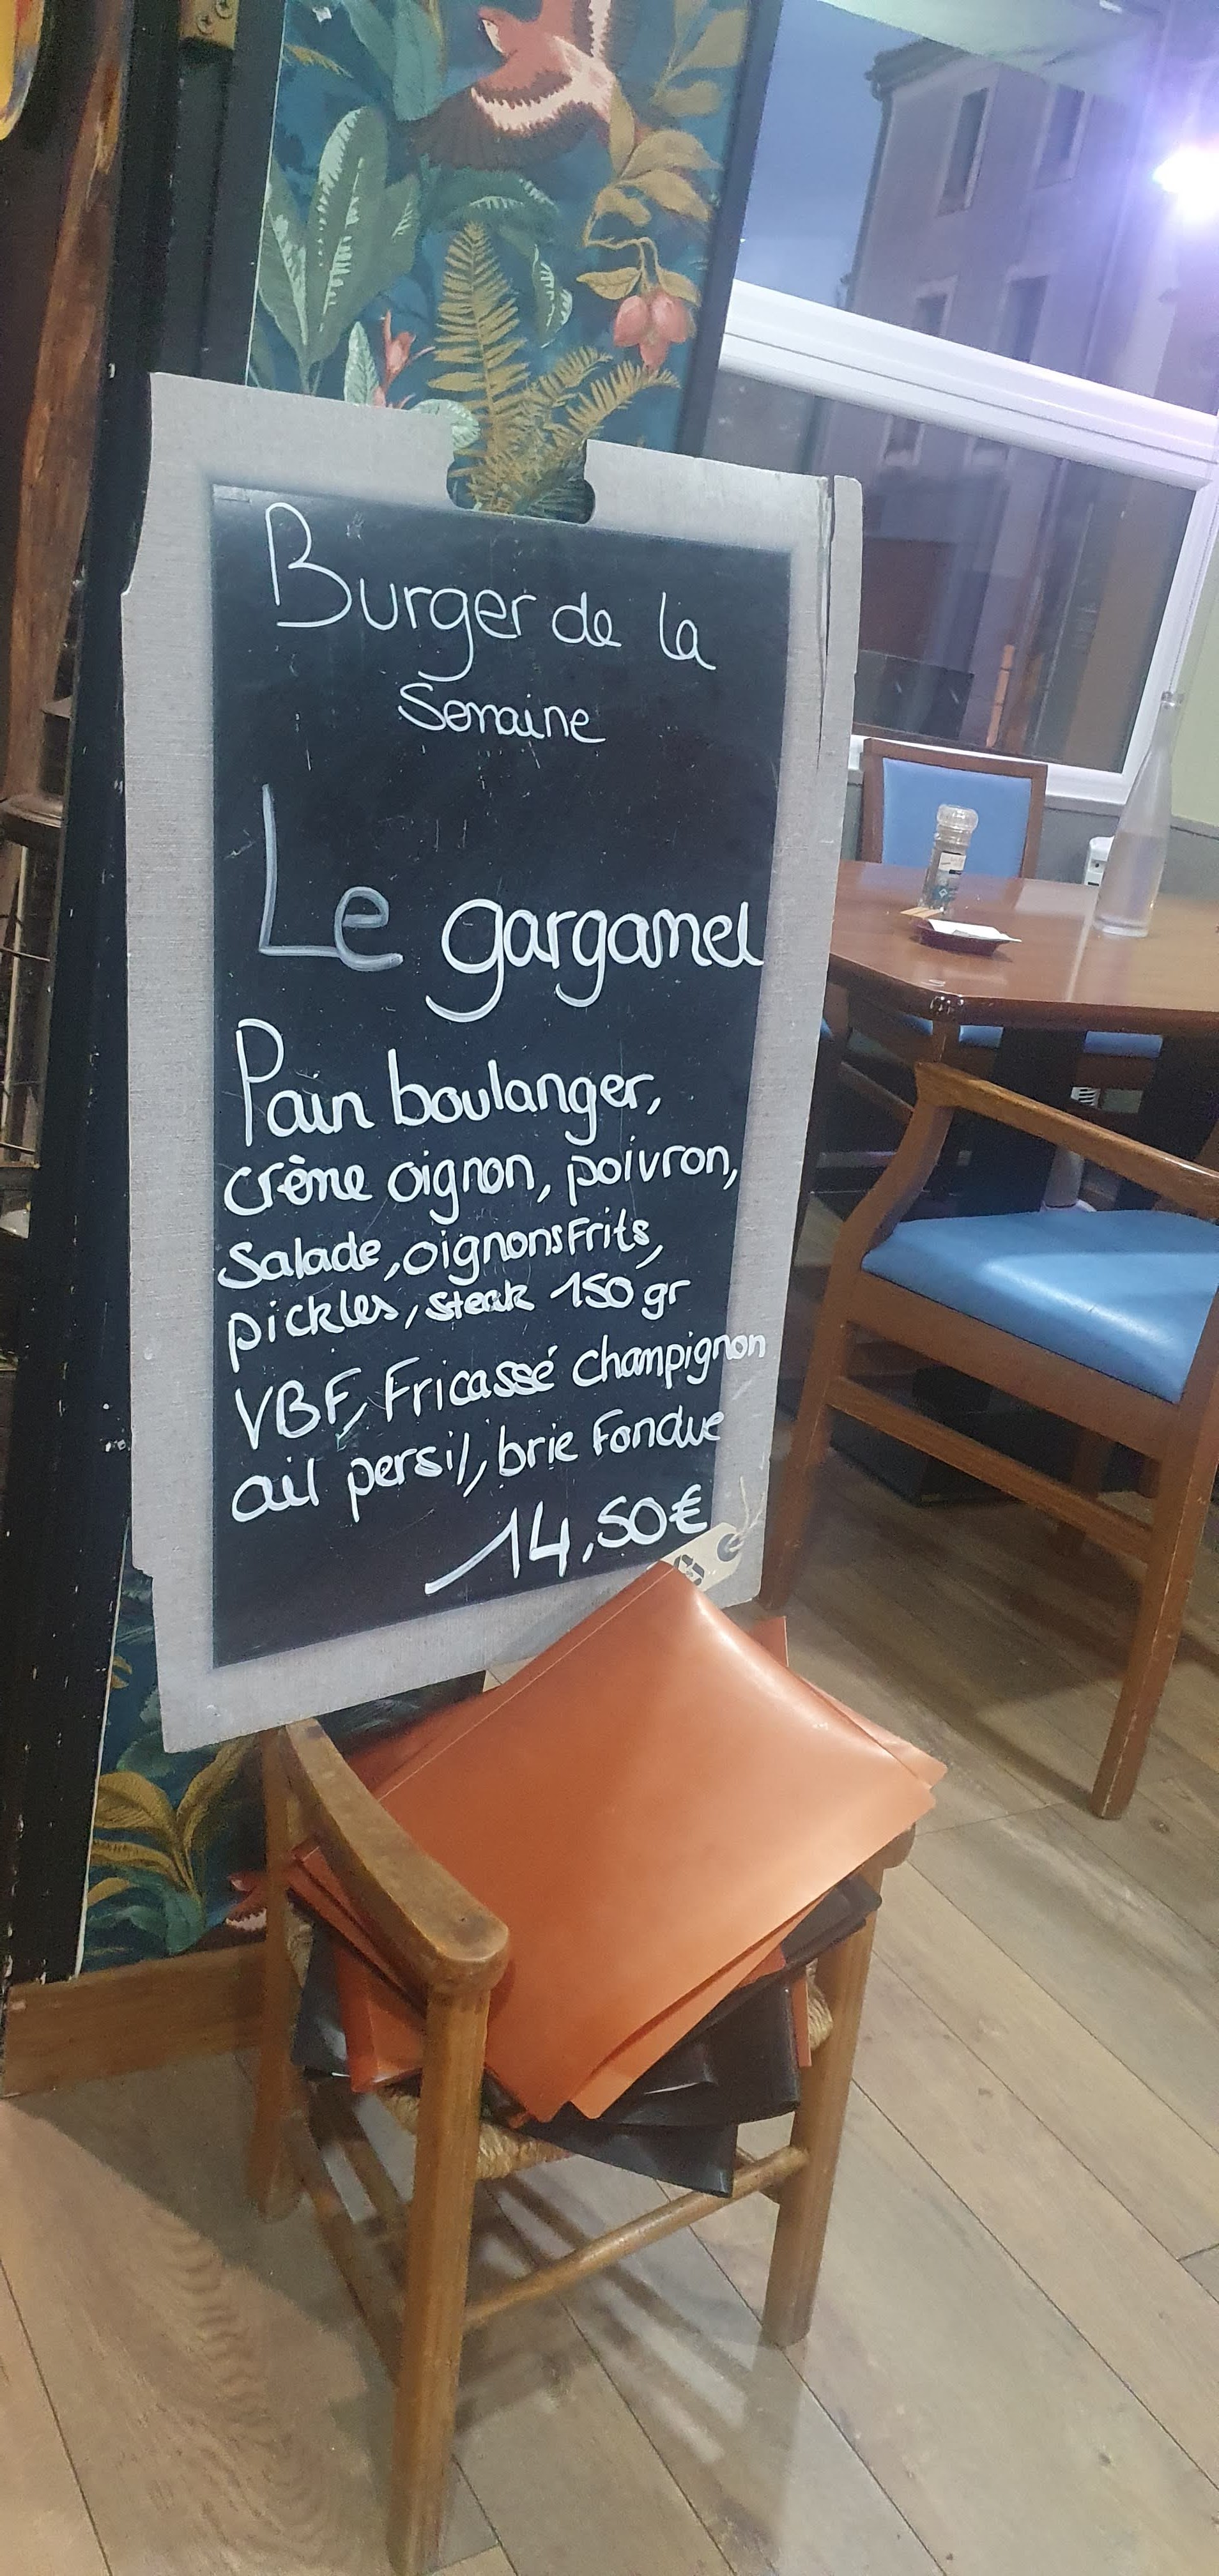 Burger de la
Semaine
Le gargamel
Pain boulanger,
crème oignon, poivron,
Salade, oignons Frits,
pickles, steak 150 gr
VBF, Fricassé champignon
ail persil, brie Fondue
14,50€